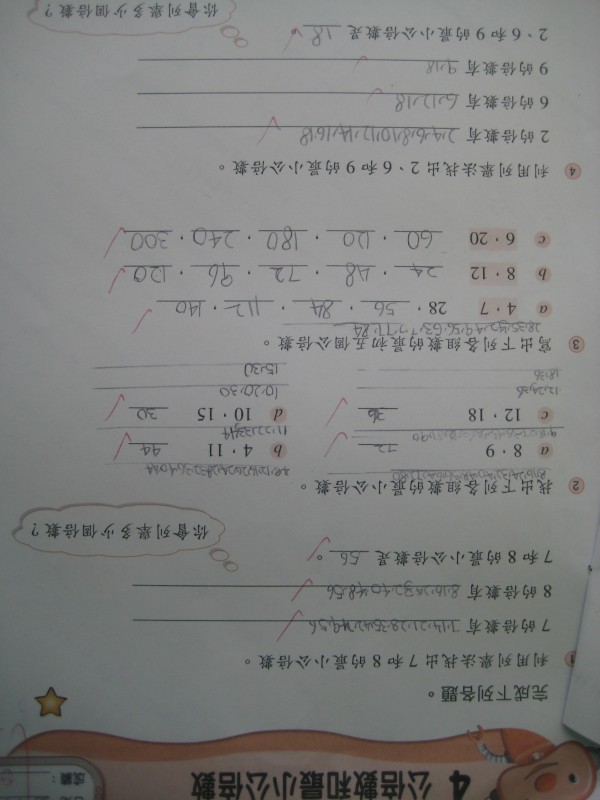 4 公倍數和最小公倍數
成績：
完成下列各題。
利用列舉法找出7和8的最小公倍數。
7的倍數有 7,14,21,28,35,42,49,56
8的倍數有 8,16,24,32,40,48,56
7和8的最小公倍數是 56。
你會列舉多少個倍數？
2 找出下列各組數的最小公倍數。
a 8，9 72
b 4，11 44
11,22,33,44
c 12，18 36
d 10，15 30
12,24,36
10,20,30
18,36
15,30
3 寫出下列各組數的最初五個公倍數。
a 4，7 28，56，84，112，140
b 8，12 24，48，72，96，120
c 6，20 60，120，180，240，300
4 利用列舉法找出2、6和9的最小公倍數。
2的倍數有 2,4,6,8,10,12,14,16,18
6的倍數有 6,12,18
9的倍數有 9,18
2、6和9的最小公倍數是 18
你會列舉多少個倍數？